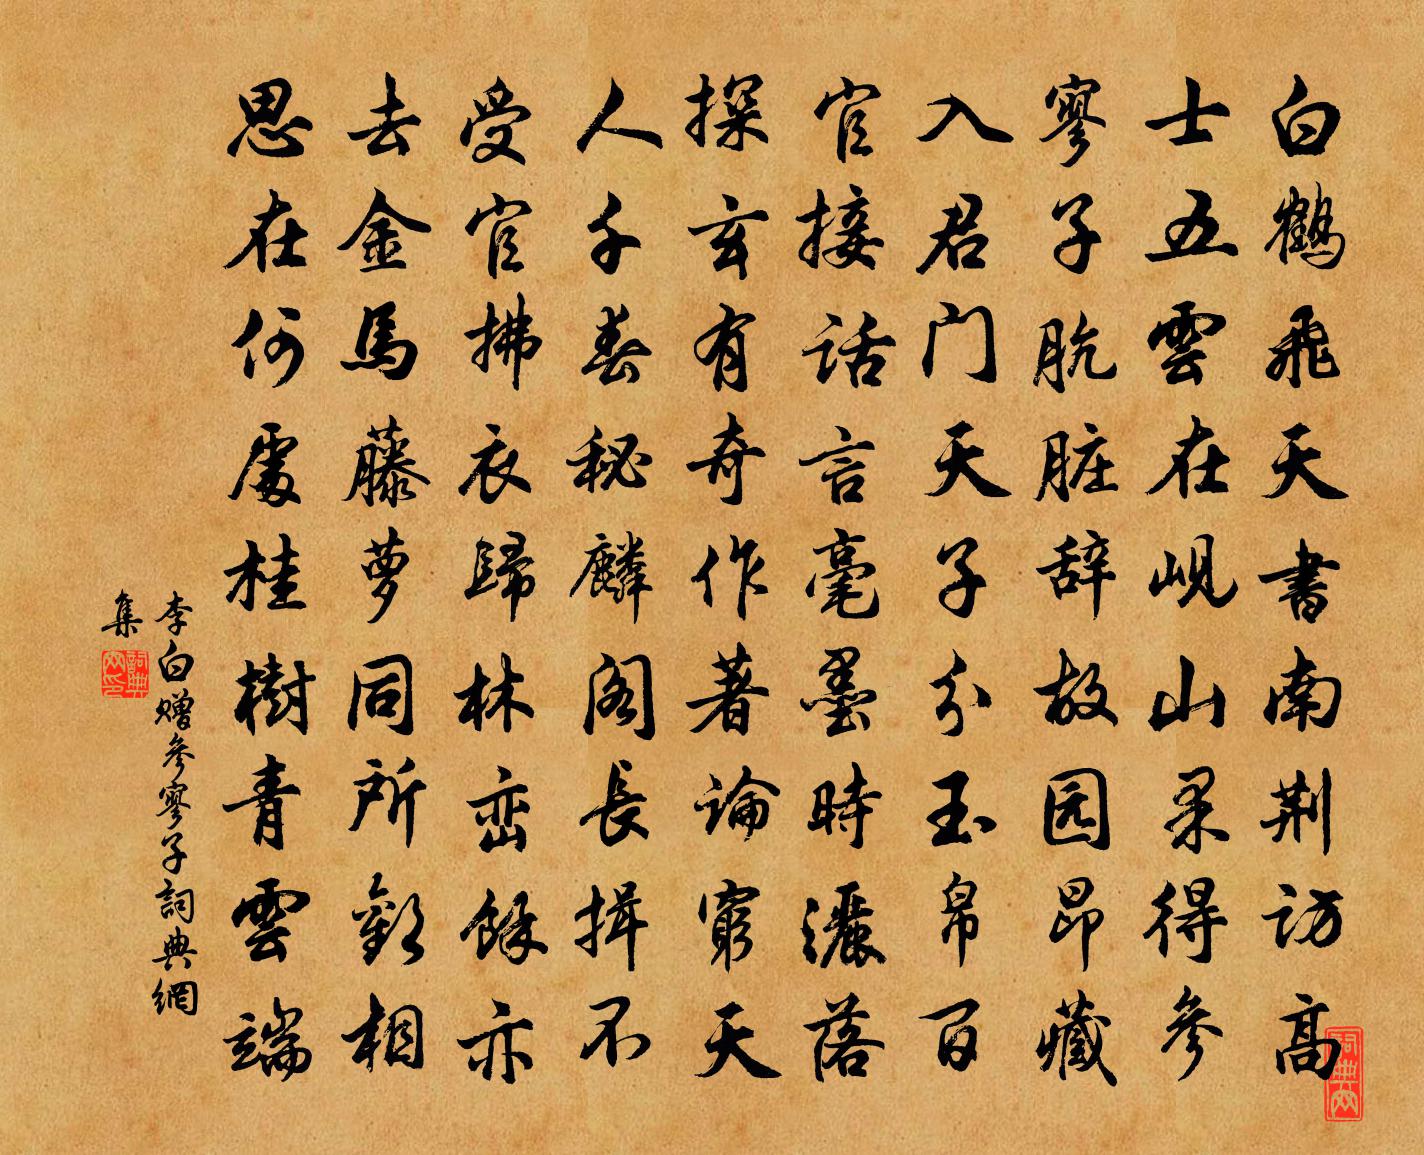 白鶴飛天書南荆访高
士五雲在岘山果得参
寥子肮脏辞故园昂藏
入君门天子分玉帛百
官接话言毫墨時灑落
探玄有奇作著論窮天
人千春秘麟阁長揖不
受官拂衣歸林峦餘亦
去金馬藤萝同所歡相
思在何處桂樹青雲端
李白赠参寥子詞典網
集
詞典网印
詞典网